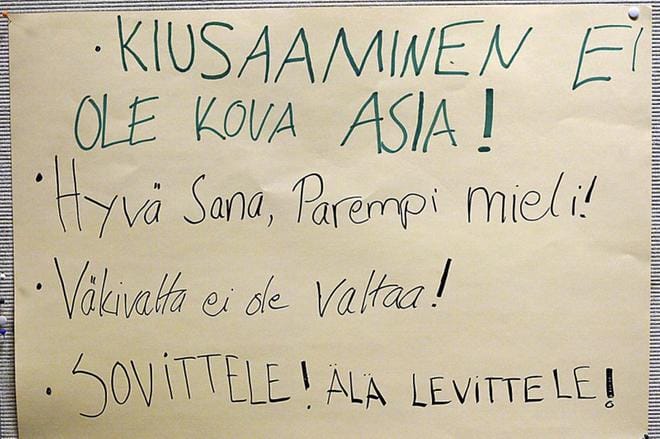 • KIUSAAMINEN EI
OLE KOVA ASIA!
• Hyvä Sana, Parempi mieli!
• Väkivalta ei ole valtaa!
• SOVITTELE! ÄLÄ LEVITTELE!